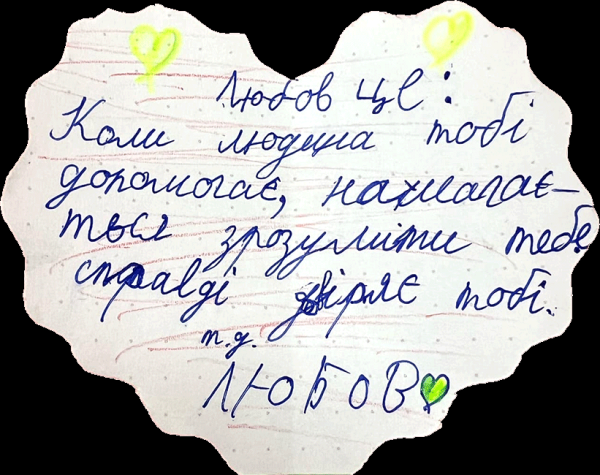 Любов це:
Коли людина тобі
допомогає, намагає-
ться зрозуміти тебе
справді довіряє тобі.
п.д.
ЛЮБОВ